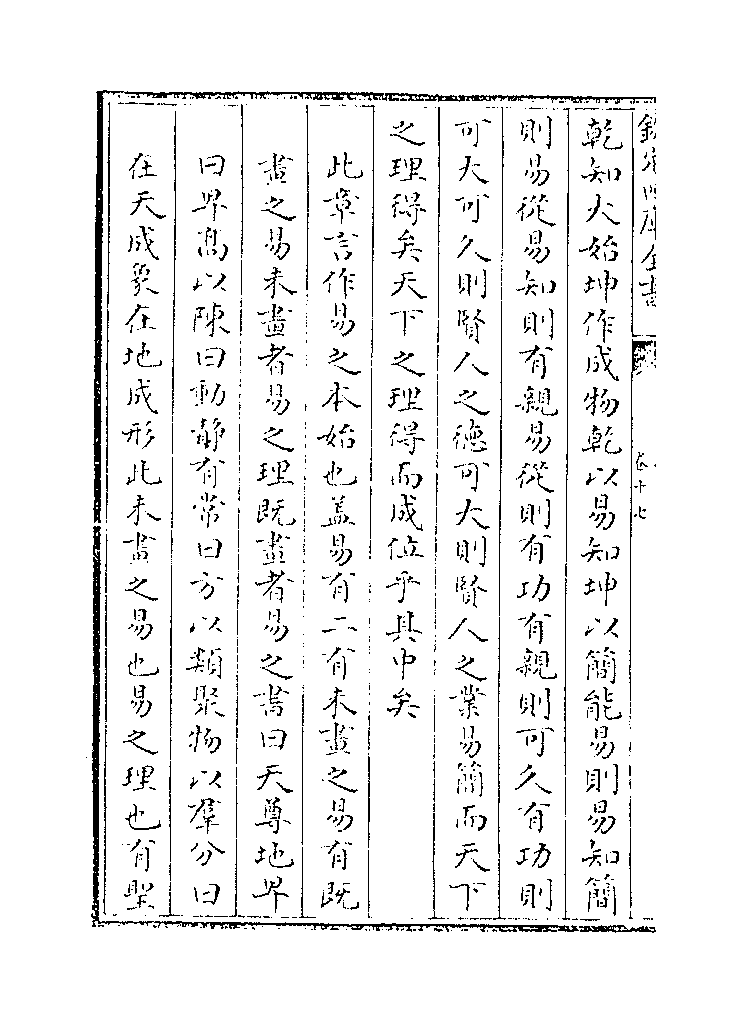 欽定四庫全書
卷十七
乾知大始坤作成物乾以易知坤以簡能易則易知簡
則易從易知則有親易從則有功有親則可久有功則
可大可久則賢人之德可大則賢人之業易簡而天下
之理得矣天下之理得而成位乎其中矣
此章言作易之本始也葢易有二有未畫之易有既
畫之易未畫者易之理既畫者易之書曰天尊地卑
曰卑髙以陳曰動静有常曰方以類聚物以羣分曰
在天成象在地成形此未畫之易也易之理也有聖